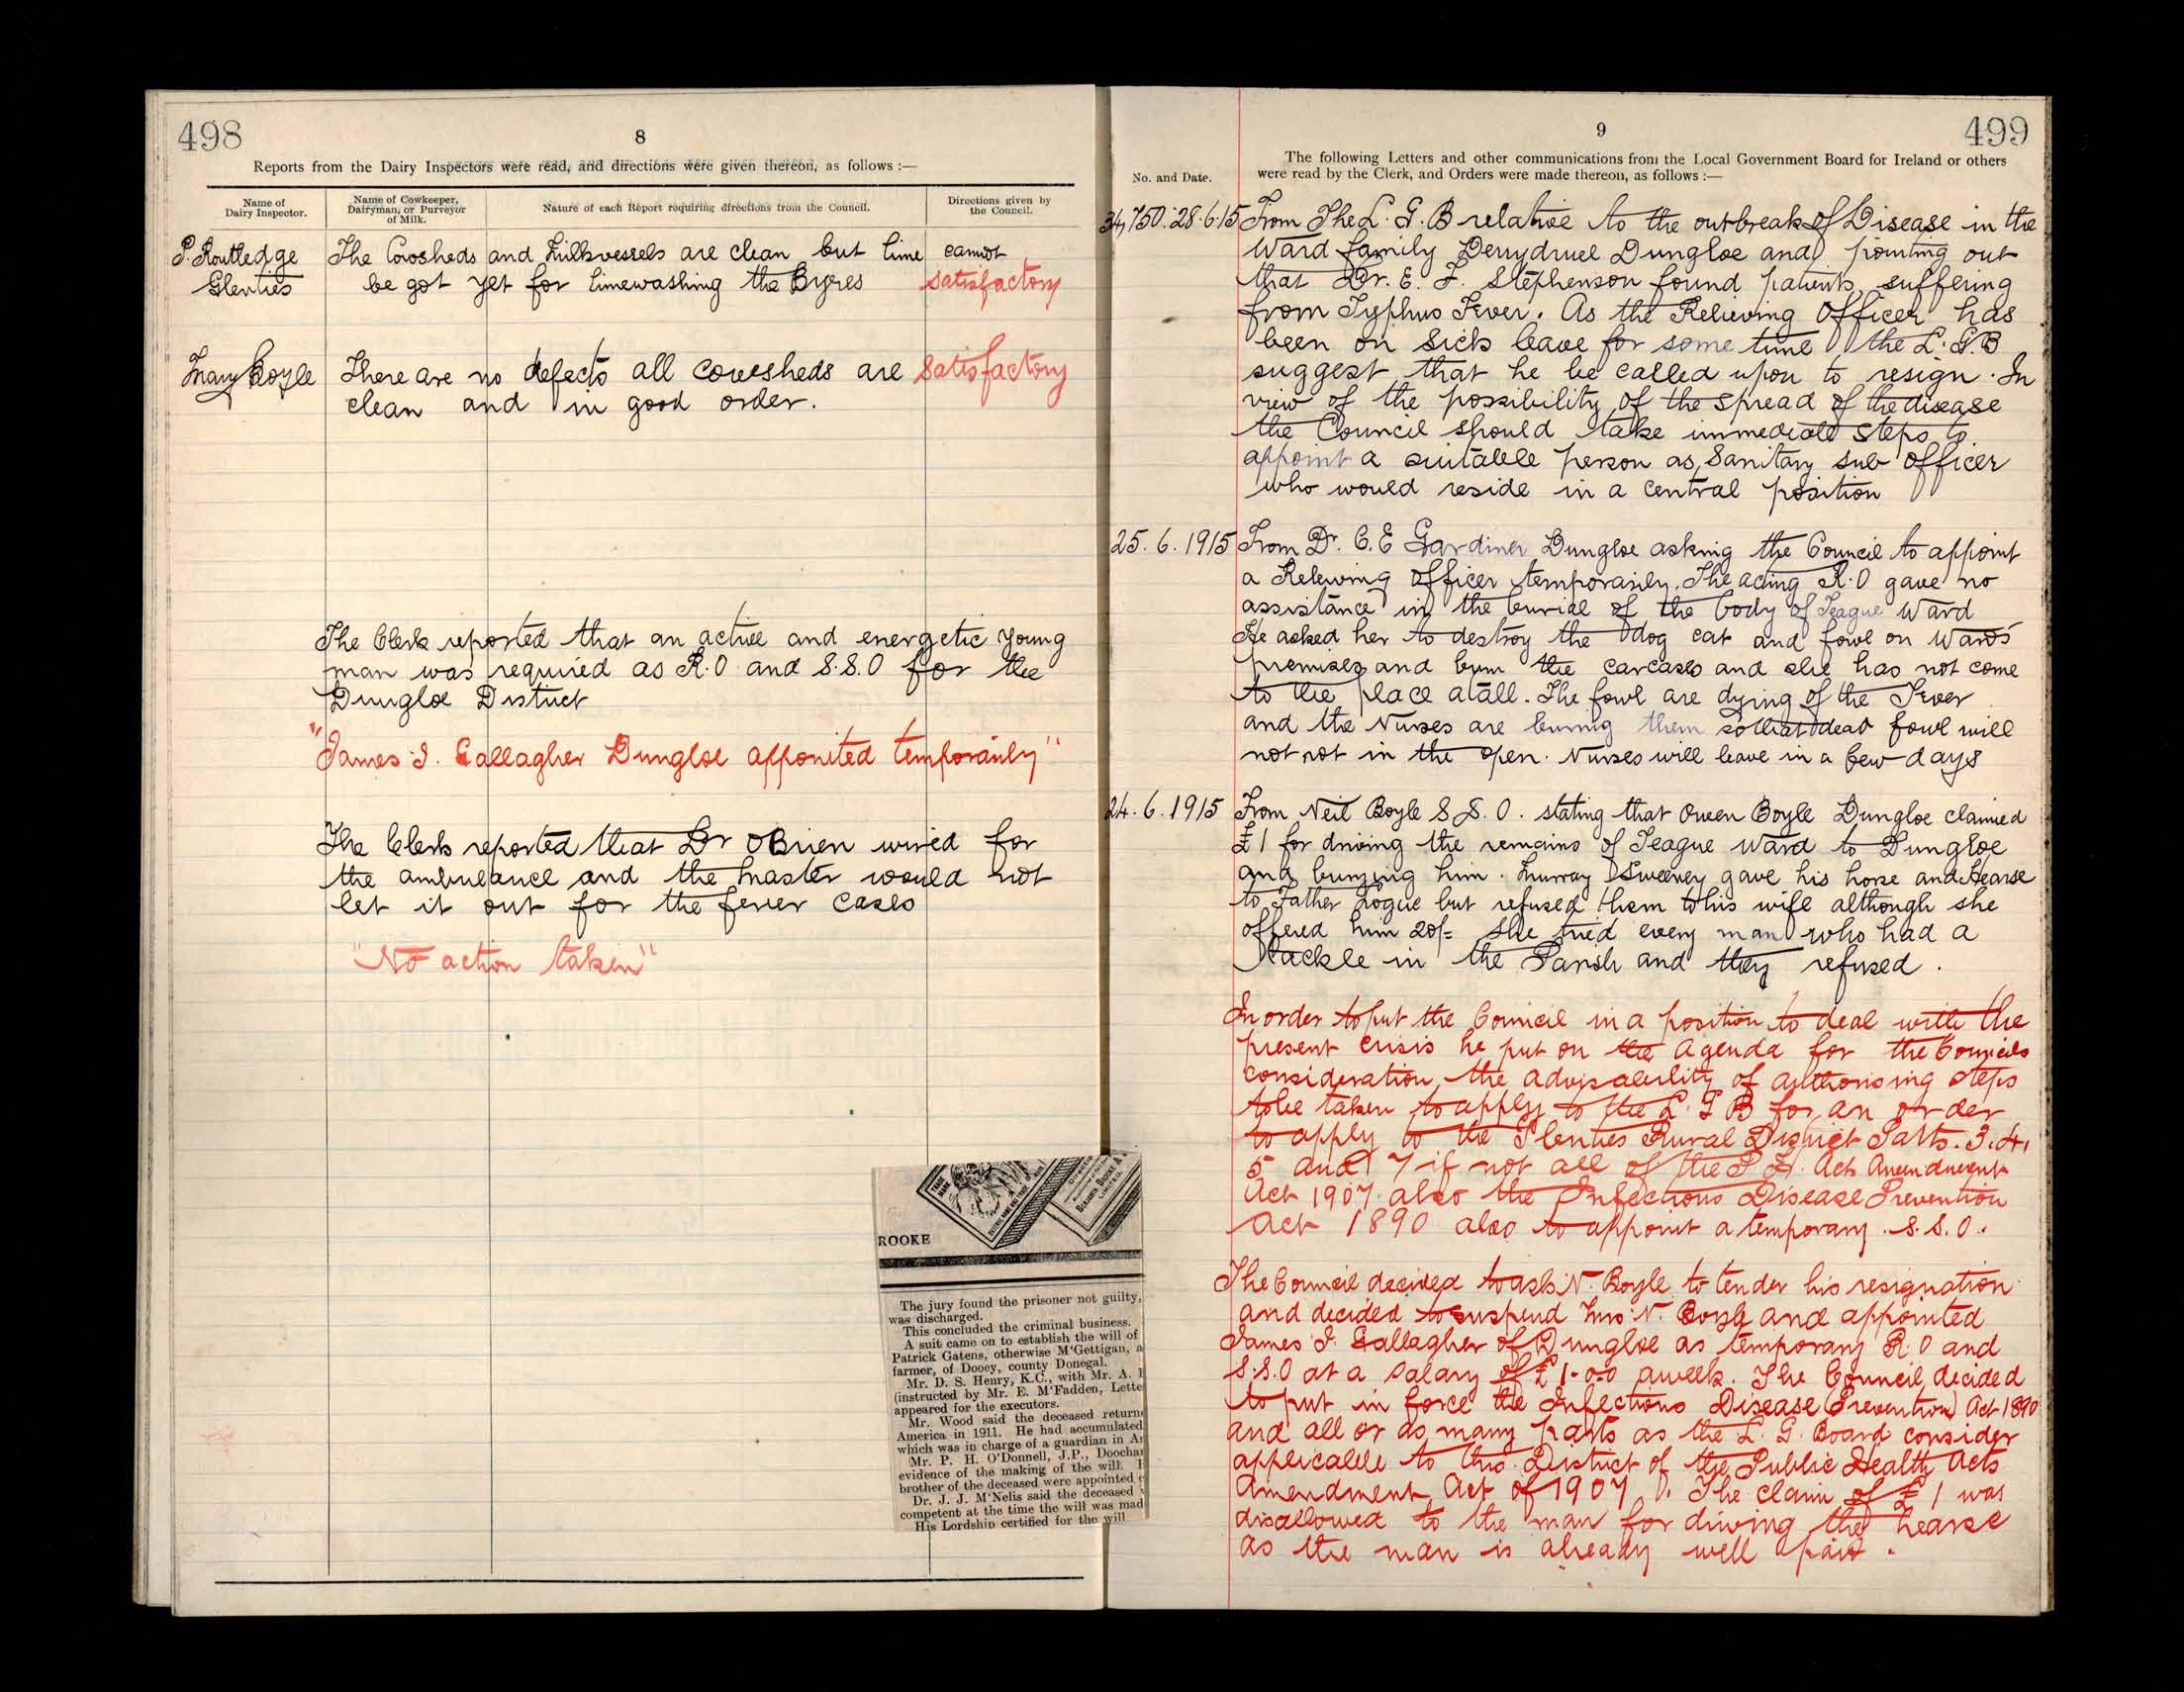 498
8
Reports from the Dairy Inspectors were read, and directions were given thereon, as follows :—
Name of
Dairy Inspector.
Name of Cowkeeper,
Dairyman, or Purveyor
of Milk.
Nature of each Report requiring directions from the Council.
Directions given by
the Council.
P. Routledge The Cowsheds and Milkvessels are clean but lime cannot
Glenties be got yet for limewashing the Byres satisfactory
Mary Boyle There are no defects all cowsheds are satisfactory
clean and in good order.
The Clerk reported that an active and energetic young
man was required as R.O and S.S.O for the
Dungloe District
"James J. Gallagher Dungloe appointed temporarily"
The Clerk reported that Dr OBrien wired for
the ambulance and the Master would not
let it out for the fever cases
"No action taken"
ROOKE
The jury found the prisoner not guilty,
was discharged.
This concluded the criminal business.
A suit came on to establish the will of
Patrick Gatens, otherwise M'Gettigan, a
farmer, of Dooey, county Donegal.
Mr. D. S. Henry, K.C., with Mr. A.
(instructed by Mr. E. M'Fadden, Lette
appeared for the executors.
Mr. Wood said the deceased return
America in 1911. He had accumulated
which was in charge of a guardian in A
Mr. P. H. O'Donnell, J.P., Doocha
evidence of the making of the will.
brother of the deceased were appointed
Dr. J. J. M'Nelis said the deceased
competent at the time the will was mad
His Lordship certified for the will
499
9
No. and Date.
The following Letters and other communications from the Local Government Board for Ireland or others
were read by the Clerk, and Orders were made thereon, as follows :—
34,750.28.6.15 From The L. G. B relative to the outbreak of Disease in the
Ward family Derrydruel Dungloe and pointing out
that Dr. E. F. Stephenson found patients suffering
from Typhus Fever. As the Relieving Officer has
been on sick leave for some time the L. G. B
suggest that he be called upon to resign. In
view of the possibility of the spread of the disease
the Council should take immediate steps to
appoint a suitable person as Sanitary sub officer
who would reside in a central position
25.6.1915 From Dr. C. E Gardiner Dungloe asking the Council to appoint
a Relieving officer temporarily. The acting R.O gave no
assistance in the burial of the body of Teague Ward
He asked her to destroy the dog cat and fowl on Wards
premises and burn the carcases and she has not come
to the place atall. The fowl are dying of the Fever
and the Nurses are burning them so that dead fowl will
not rot in the open. Nurses will leave in a few days
24.6.1915 From Neil Boyle S.S.O. stating that Owen Boyle Dungloe claimed
£1 for driving the remains of Teague Ward to Dungloe
and burying him. Murray Sweeney gave his horse and Hearse
to Father Logue but refused them to his wife although she
offered him 20/= she tried every man who had a
tackle in the Parish and they refused.
In order to put the Council in a position to deal with the
present crisis he put on the agenda for the Councils
consideration the advisability of authorising steps
to be taken to apply to the L. G B for an order
to apply to the Glenties Rural District Parts. 3. 4.
5 and 7 if not all of the P H. Acts Amendment
Act 1907 also the Infectious Disease Prevention
Act 1890 also to appoint a temporary S.S.O.
The Council decided to ask N. Boyle to tender his resignation
and decided to suspend Mrs N. Boyle and appointed
James J. Gallagher of Dungloe as temporary R.O and
S.S.O at a salary of £1-0-0 a week. The Council decided
to put in force the Infectious Disease (Prevention) Act 1890
and all or as many parts as the L. G. Board consider
applicable to this District of the Public Health Acts
Amendment Act of 1907. The claim of £1 was
disallowed to the man for driving the hearse
as the man is already well paid.